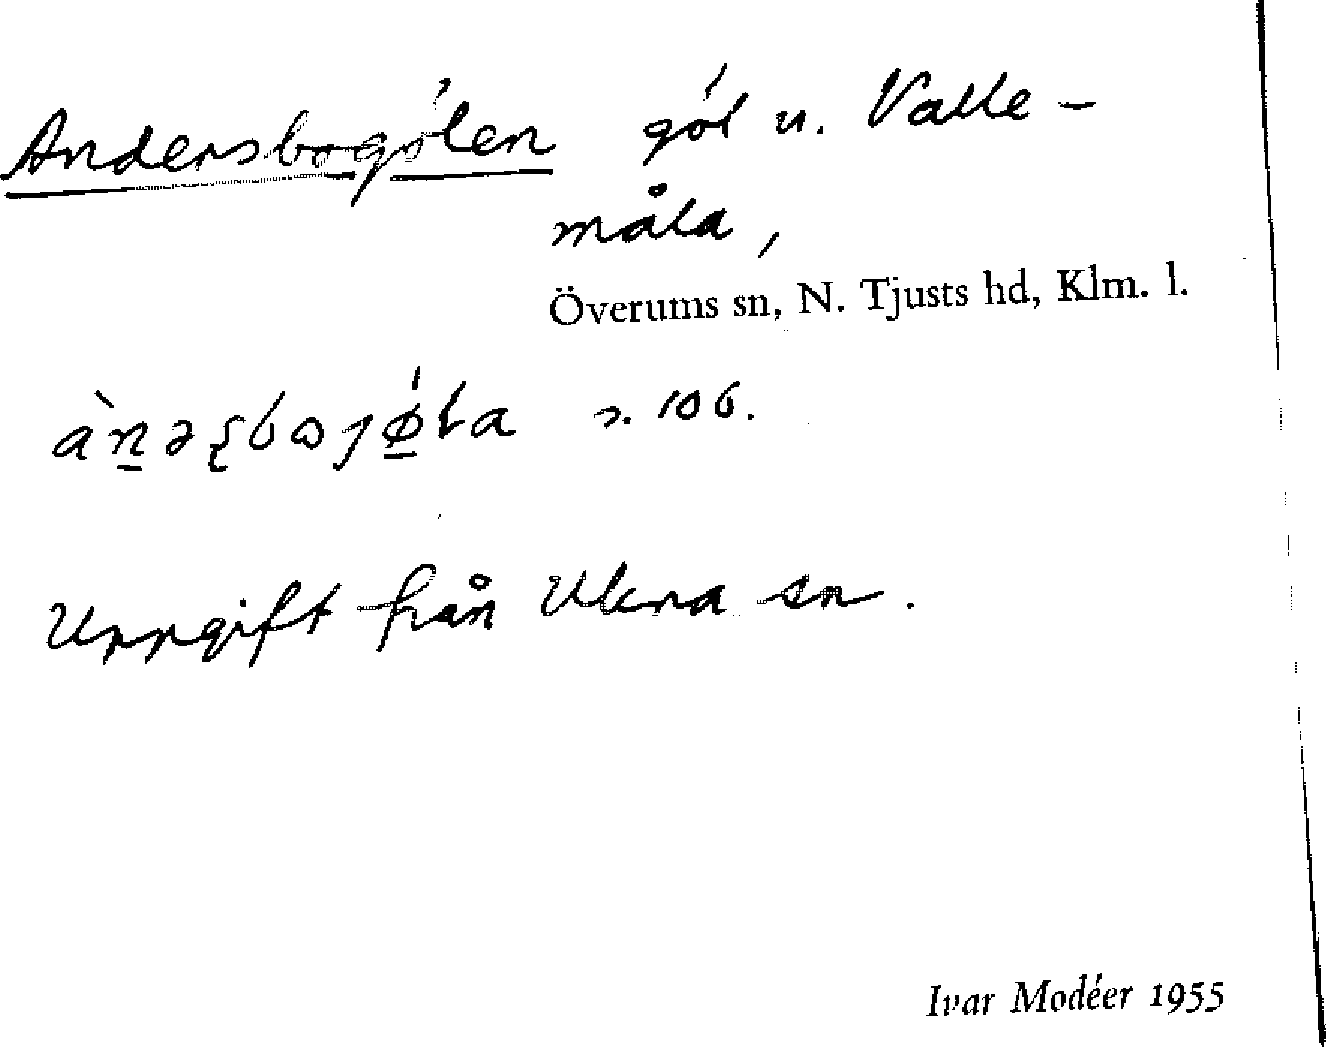 Andersbogólen gól u. Valle-
måla,
Överums sn, N. Tjusts hd, Klm. l.
s. 106.
Uppgift från Ukna sn.
Ivar Modéer 1955